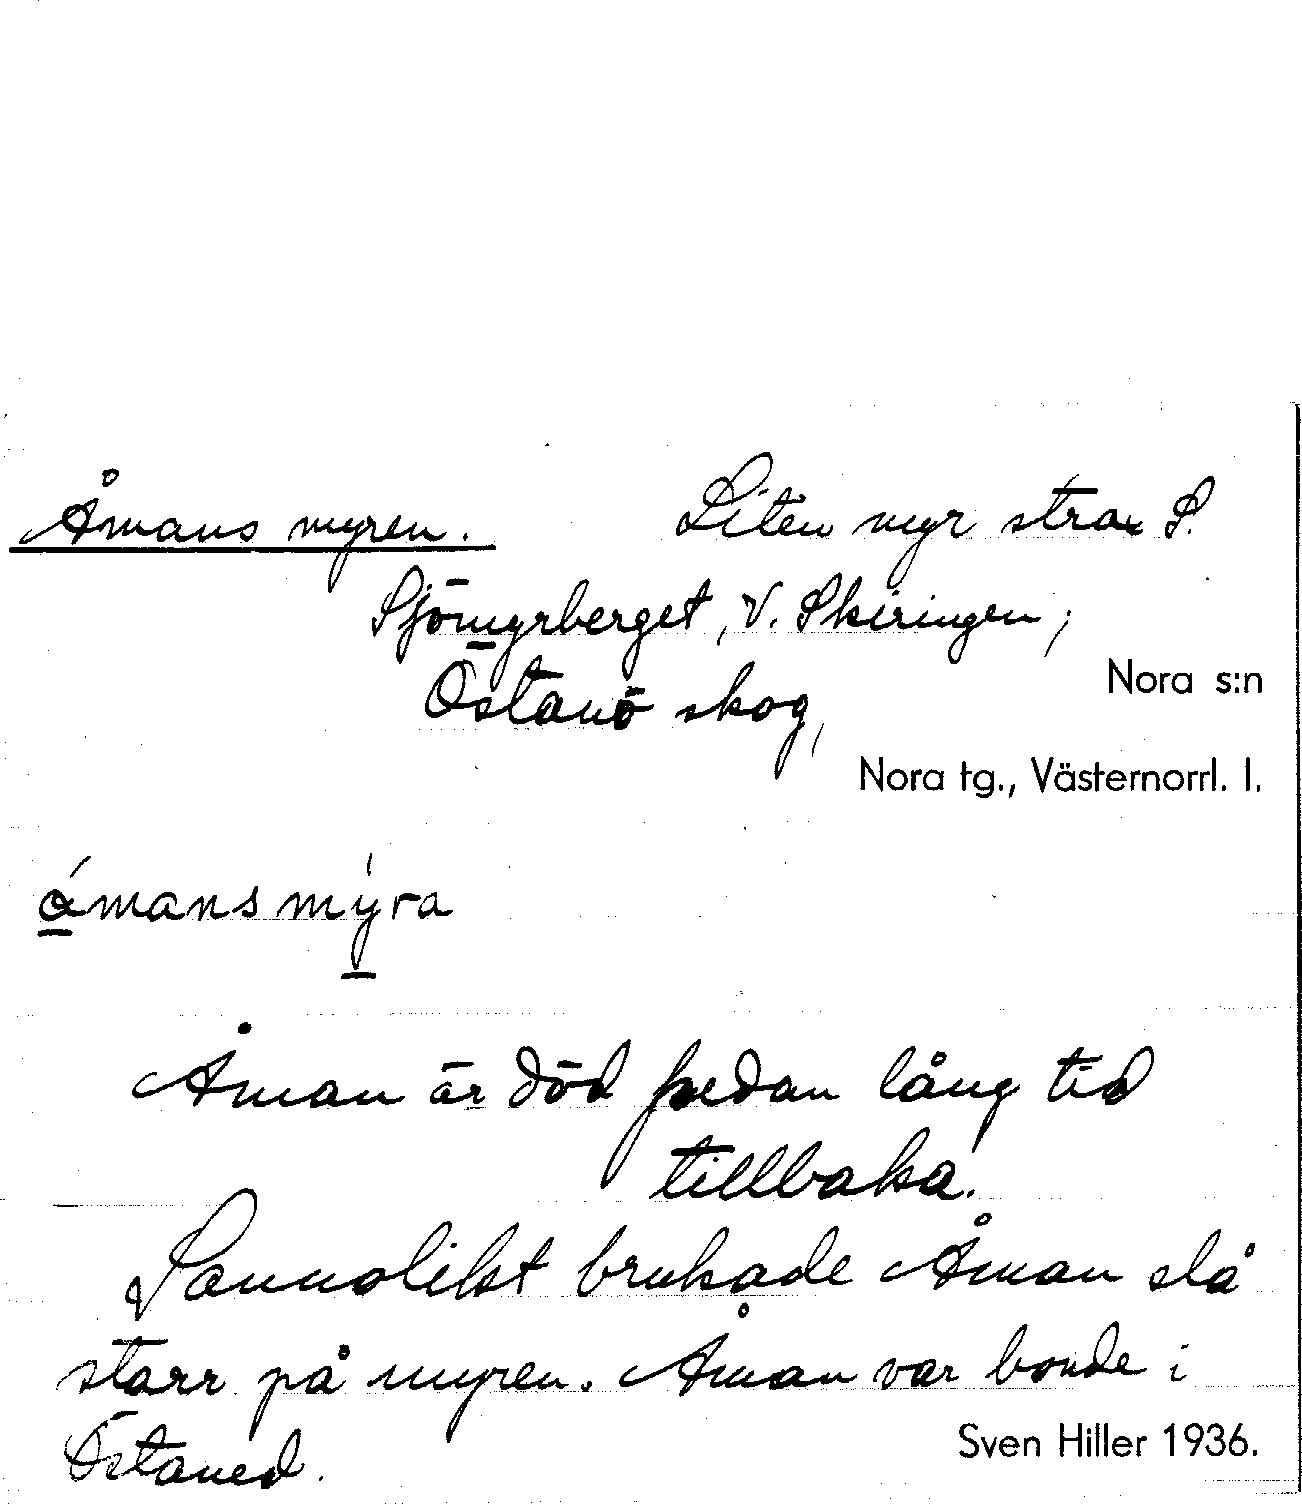 Åmans myren. Liten myr strax S.
Sjömyrberget, V. Skiringen,
Östanö skog,
Nora s:n
Nora tg., Västernorrl. l.
ámansmýra
Åman är död sedan lång tid
tillbaka.
Sannolikt brukade Åman slå
starr på myren. Åman var bonde i
Sven Hiller 1936.